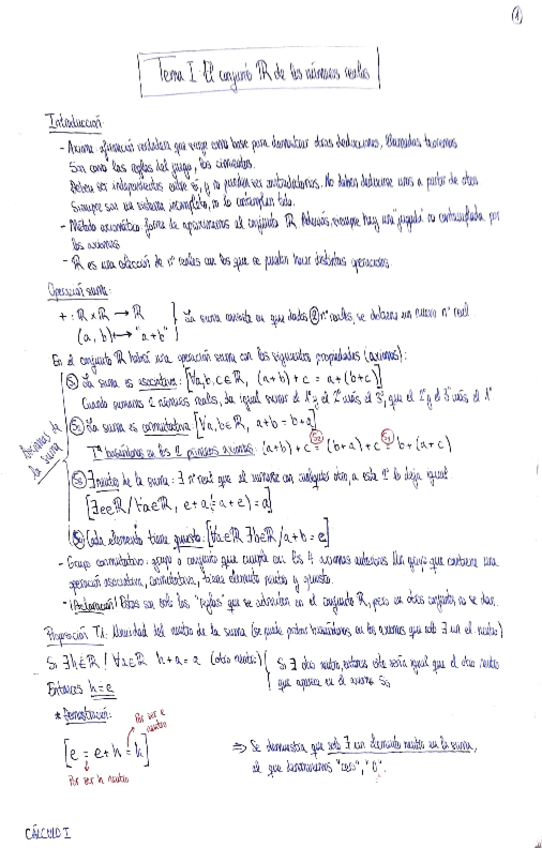 1
Tema I: El conjunto ℝ de los números reales
Introducción
- Axioma: afirmación verdadera que surge como base para demostrar otras deducciones, llamadas teoremas
Son como las reglas del juego, los cimientos.
Deben ser independientes entre sí, y no pueden ser contradictorios. No deben deducirse unos a partir de otros
Siempre son un sistema incompleto, no lo contemplan todo.
- Método axiomático: forma de aproximarnos al conjunto ℝ. Además, siempre hay una "jugada" no contemplada por
los axiomas
- ℝ es una colección de nº reales con los que se pueden hacer distintas operaciones
Operación suma:
+ : ℝ x ℝ → ℝ
(a, b) ↦ "a+b"
La suma consiste en que dados 2 nº reales, se obtiene un nuevo nº real
En el conjunto ℝ habrá una operación suma con las siguientes propiedades (axiomas):
Axiomas de la suma
La suma es asociativa: [∀a,b,c∈ℝ, (a+b)+c = a+(b+c)]
Cuando sumamos números reales, da igual sumar el 1º y el 2º más el 3º, que el 2º y el 3º más el 1º.
S₂ La suma es conmutativa: [∀a,b∈ℝ, a+b = b+a]
Tª basándonos en los 2 primeros axiomas: (a+b)+c = (b+a)+c = b+(a+c)
S₂
S₁
S₃ ∃ neutro de la suma: ∃ nº real que al sumarse con cualquier otro, a este 2º lo deja igual
[∃e∈ℝ / ∀a∈ℝ, e+a (= a+e) = a]
Cada elemento tiene opuesto: [∀a∈ℝ ∃b∈ℝ / a+b = e]
- Grupo conmutativo: grupo o conjunto que cumple con los 4 axiomas anteriores. Un grupo que contiene una
operación asociativa, conmutativa, tiene elemento neutro y opuesto.
- ¡Aclaración! Estas son solo las "reglas" que se cumplen en el conjunto ℝ, pero en otros conjuntos no se dan.
Proposición T1: Unicidad del neutro de la suma (se puede probar basándonos en los axiomas que solo ∃ un el neutro)
Si ∃h∈ℝ / ∀a∈ℝ h+a = a (otro neutro)
Si ∃ otro neutro, entonces este sería igual que el otro neutro
que aparece en el axioma S₃
Entonces h=e
* Demostración:
Por ser e neutro
[e = e+h = h]
Por ser h neutro
⇒ Se demuestra que solo ∃ un elemento neutro en la suma,
al que denominamos "cero", "0".
CÁLCULO I